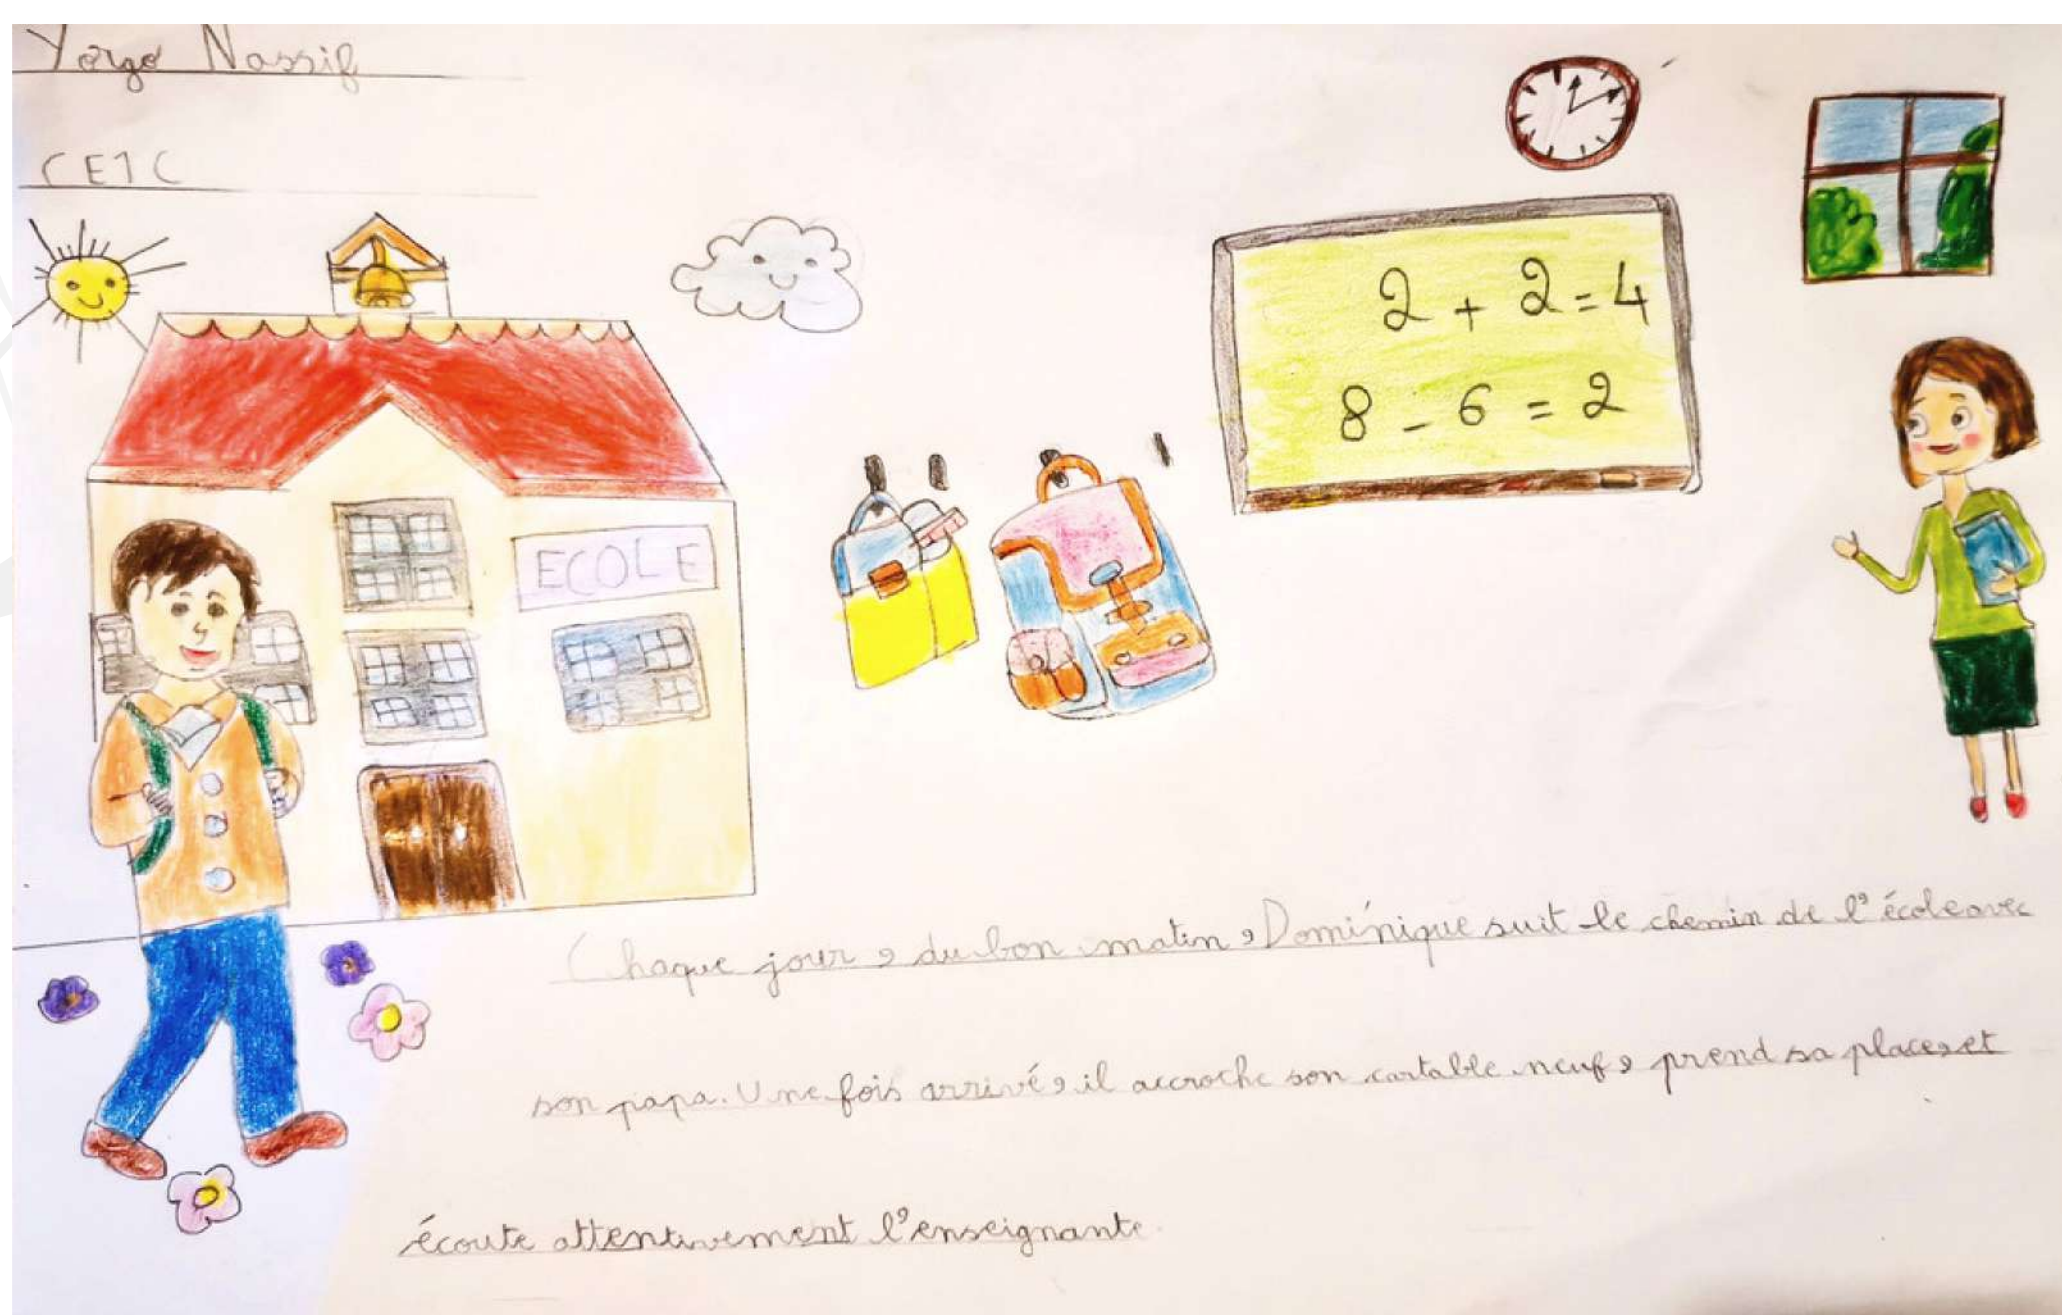 Yorgo Nassif
CE1C
ECOLE
2 + 2 = 4
8 - 6 = 2
Chaque jour, du bon matin, Dominique suit le chemin de l'école avec
son papa. Une fois arrivé, il accroche son cartable neuf, prend sa place, et
écoute attentivement l'enseignante.